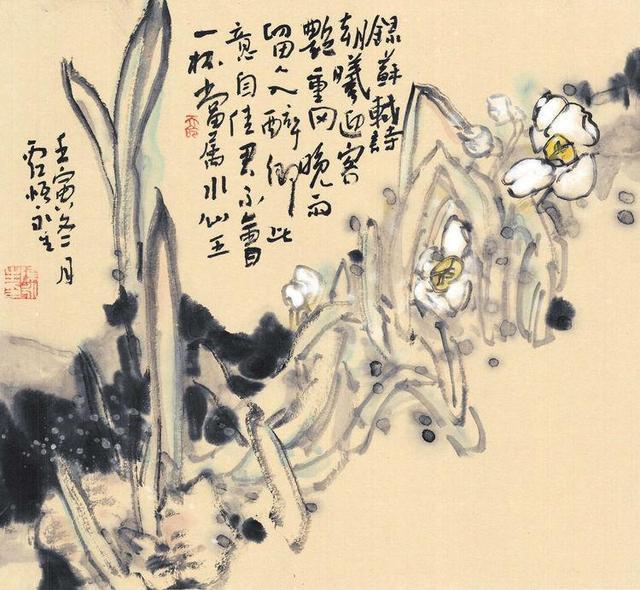 錄蘇軾詩
朝曦迎客
艷重冈晚雨
留人入醉鄉此
意自佳君不會
一杯當屬水仙王
壬寅冬二月